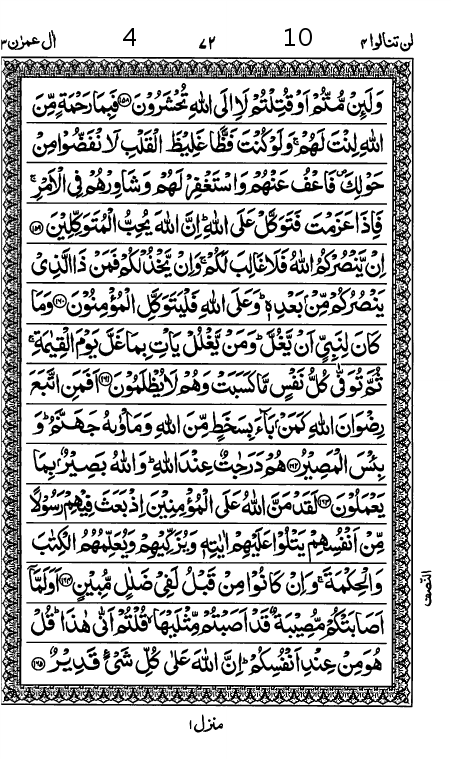 لن تنالوا ۴ 10 ۷۲ 4 اٰل عمرٰن ۳
وَلَىِٕنْ مُّتُّمْ اَوْ قُتِلْتُمْ لَا۟اِلَى اللّٰهِ تُحْشَرُوْنَ ﴿۱۵۸﴾ فَبِمَا رَحْمَةٍ مِّنَ
اللّٰهِ لِنْتَ لَهُمْ ۚ وَلَوْ كُنْتَ فَظًّا غَلِيْظَ الْقَلْبِ لَا نْفَضُّوْا مِنْ
حَوْلِكَ ۪ فَاعْفُ عَنْهُمْ وَاسْتَغْفِرْ لَهُمْ وَشَاوِرْهُمْ فِى الْاَمْرِ ۚ
فَاِذَا عَزَمْتَ فَتَوَكَّلْ عَلَى اللّٰهِ ؕ اِنَّ اللّٰهَ يُحِبُّ الْمُتَوَكِّلِيْنَ ﴿۱۵۹﴾
اِنْ يَّنْصُرْكُمُ اللّٰهُ فَلَا غَالِبَ لَكُمْ ۚ وَاِنْ يَّخْذُلْكُمْ فَمَنْ ذَا الَّذِىْ
يَنْصُرُكُمْ مِّنْۢ بَعْدِهٖ ؕ وَعَلَى اللّٰهِ فَلْيَتَوَكَّلِ الْمُؤْمِنُوْنَ ﴿۱۶۰﴾ وَمَا
كَانَ لِنَبِىٍّ اَنْ يَّغُلَّ ؕ وَمَنْ يَّغْلُلْ يَاْتِ بِمَا غَلَّ يَوْمَ الْقِيٰمَةِ ۚ
ثُمَّ تُوَفّٰى كُلُّ نَفْسٍ مَّا كَسَبَتْ وَهُمْ لَا يُظْلَمُوْنَ ﴿۱۶۱﴾ اَفَمَنِ اتَّبَعَ
رِضْوَانَ اللّٰهِ كَمَنْۢ بَآءَ بِسَخَطٍ مِّنَ اللّٰهِ وَمَاْوٰىهُ جَهَنَّمُ ؕ وَ
بِئْسَ الْمَصِيْرُ ﴿۱۶۲﴾ هُمْ دَرَجٰتٌ عِنْدَ اللّٰهِ ؕ وَاللّٰهُ بَصِيْرٌۢ بِمَا
يَعْمَلُوْنَ ﴿۱۶۳﴾ لَقَدْ مَنَّ اللّٰهُ عَلَى الْمُؤْمِنِيْنَ اِذْ بَعَثَ فِيْهِمْ رَسُوْلًا
مِّنْ اَنْفُسِهِمْ يَتْلُوْا عَلَيْهِمْ اٰيٰتِهٖ وَيُزَكِّيْهِمْ وَيُعَلِّمُهُمُ الْكِتٰبَ
وَالْحِكْمَةَ ۚ وَاِنْ كَانُوْا مِنْ قَبْلُ لَفِىْ ضَلٰلٍ مُّبِيْنٍ ﴿۱۶۴﴾ اَوَلَمَّاۤ
اَصَابَتْكُمْ مُّصِيْبَةٌ قَدْ اَصَبْتُمْ مِّثْلَيْهَا ۙ قُلْتُمْ اَنّٰى هٰذَا ؕ قُلْ
هُوَ مِنْ عِنْدِ اَنْفُسِكُمْ ؕ اِنَّ اللّٰهَ عَلٰى كُلِّ شَىْءٍ قَدِيْرٌ ﴿۱۶۵﴾
النّصف
منزل ۱